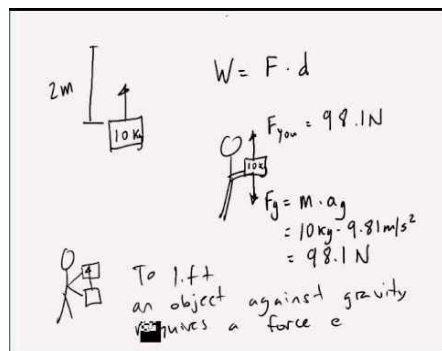 2m
10 Kg
W = F · d
F you = 98.1N
Fg = m · ag
= 10kg · 9.81m/s²
= 98.1 N
To lift
an object against gravity
requires a force e